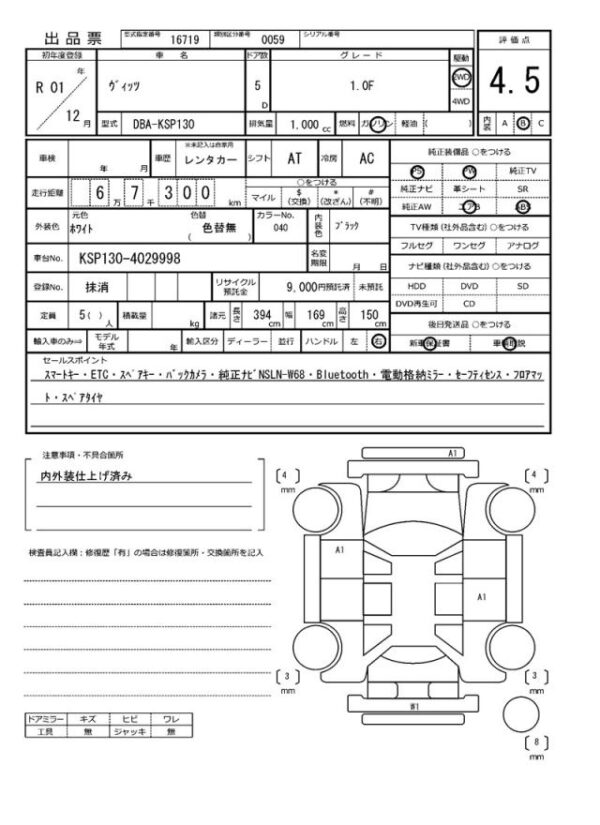 出品票 型式指定番号 16719 類別区分番号 0059 シリアル番号
評価点
初年度登録 車名 ドア数 グレード 駆動
R 01 年 ヴィッツ 5 D 1.0F 2WD 4WD
4.5
12 月 型式 DBA-KSP130 排気量 1,000 cc 燃料 ガソリン 軽油 ( )
内装 A B C
車検 年 月 車歴 ※未記入は自家用 レンタカー シフト AT 冷房 AC
純正装備品 ○をつける
PS PW 純正TV
走行距離 6万 7千 300 km ○をつける
マイル $(交換) *(改ざん) #(不明)
純正ナビ 革シート SR
純正AW エアB ABS
外装色 元色 ホワイト 色替 ( 色替無 ) カラーNo. 040 内装色 ブラック
TV種類(社外品含む)○をつける
フルセグ ワンセグ アナログ
車台No. KSP130-4029998 名変期限 月 日
ナビ種類(社外品含む)○をつける
登録No. 抹消 リサイクル預託金 9,000円預託済 未預託
HDD DVD SD
DVD再生可 CD
定員 5( )人 積載量 kg 諸元 長さ 394 cm 幅 169 cm 高さ 150 cm
後日発送品 ○をつける
輸入車のみ⇒ モデル年式 年 輸入区分 ディーラー 並行 ハンドル 左 右
新車保証書 車輌取説
セールスポイント
スマートキー・ETC・スペアキー・バックカメラ・純正ナビNSLN-W68・Bluetooth・電動格納ミラー・セーフティセンス・フロアマッ
ト・スペアタイヤ
注意事項・不具合箇所
内外装仕上げ済み
検査員記入欄:修復歴「有」の場合は修復箇所・交換箇所を記入
A1
4 mm
4 mm
A1
A1
3 mm
3 mm
W1
8 mm
ドアミラー キズ ヒビ ワレ
工具 無 ジャッキ 無